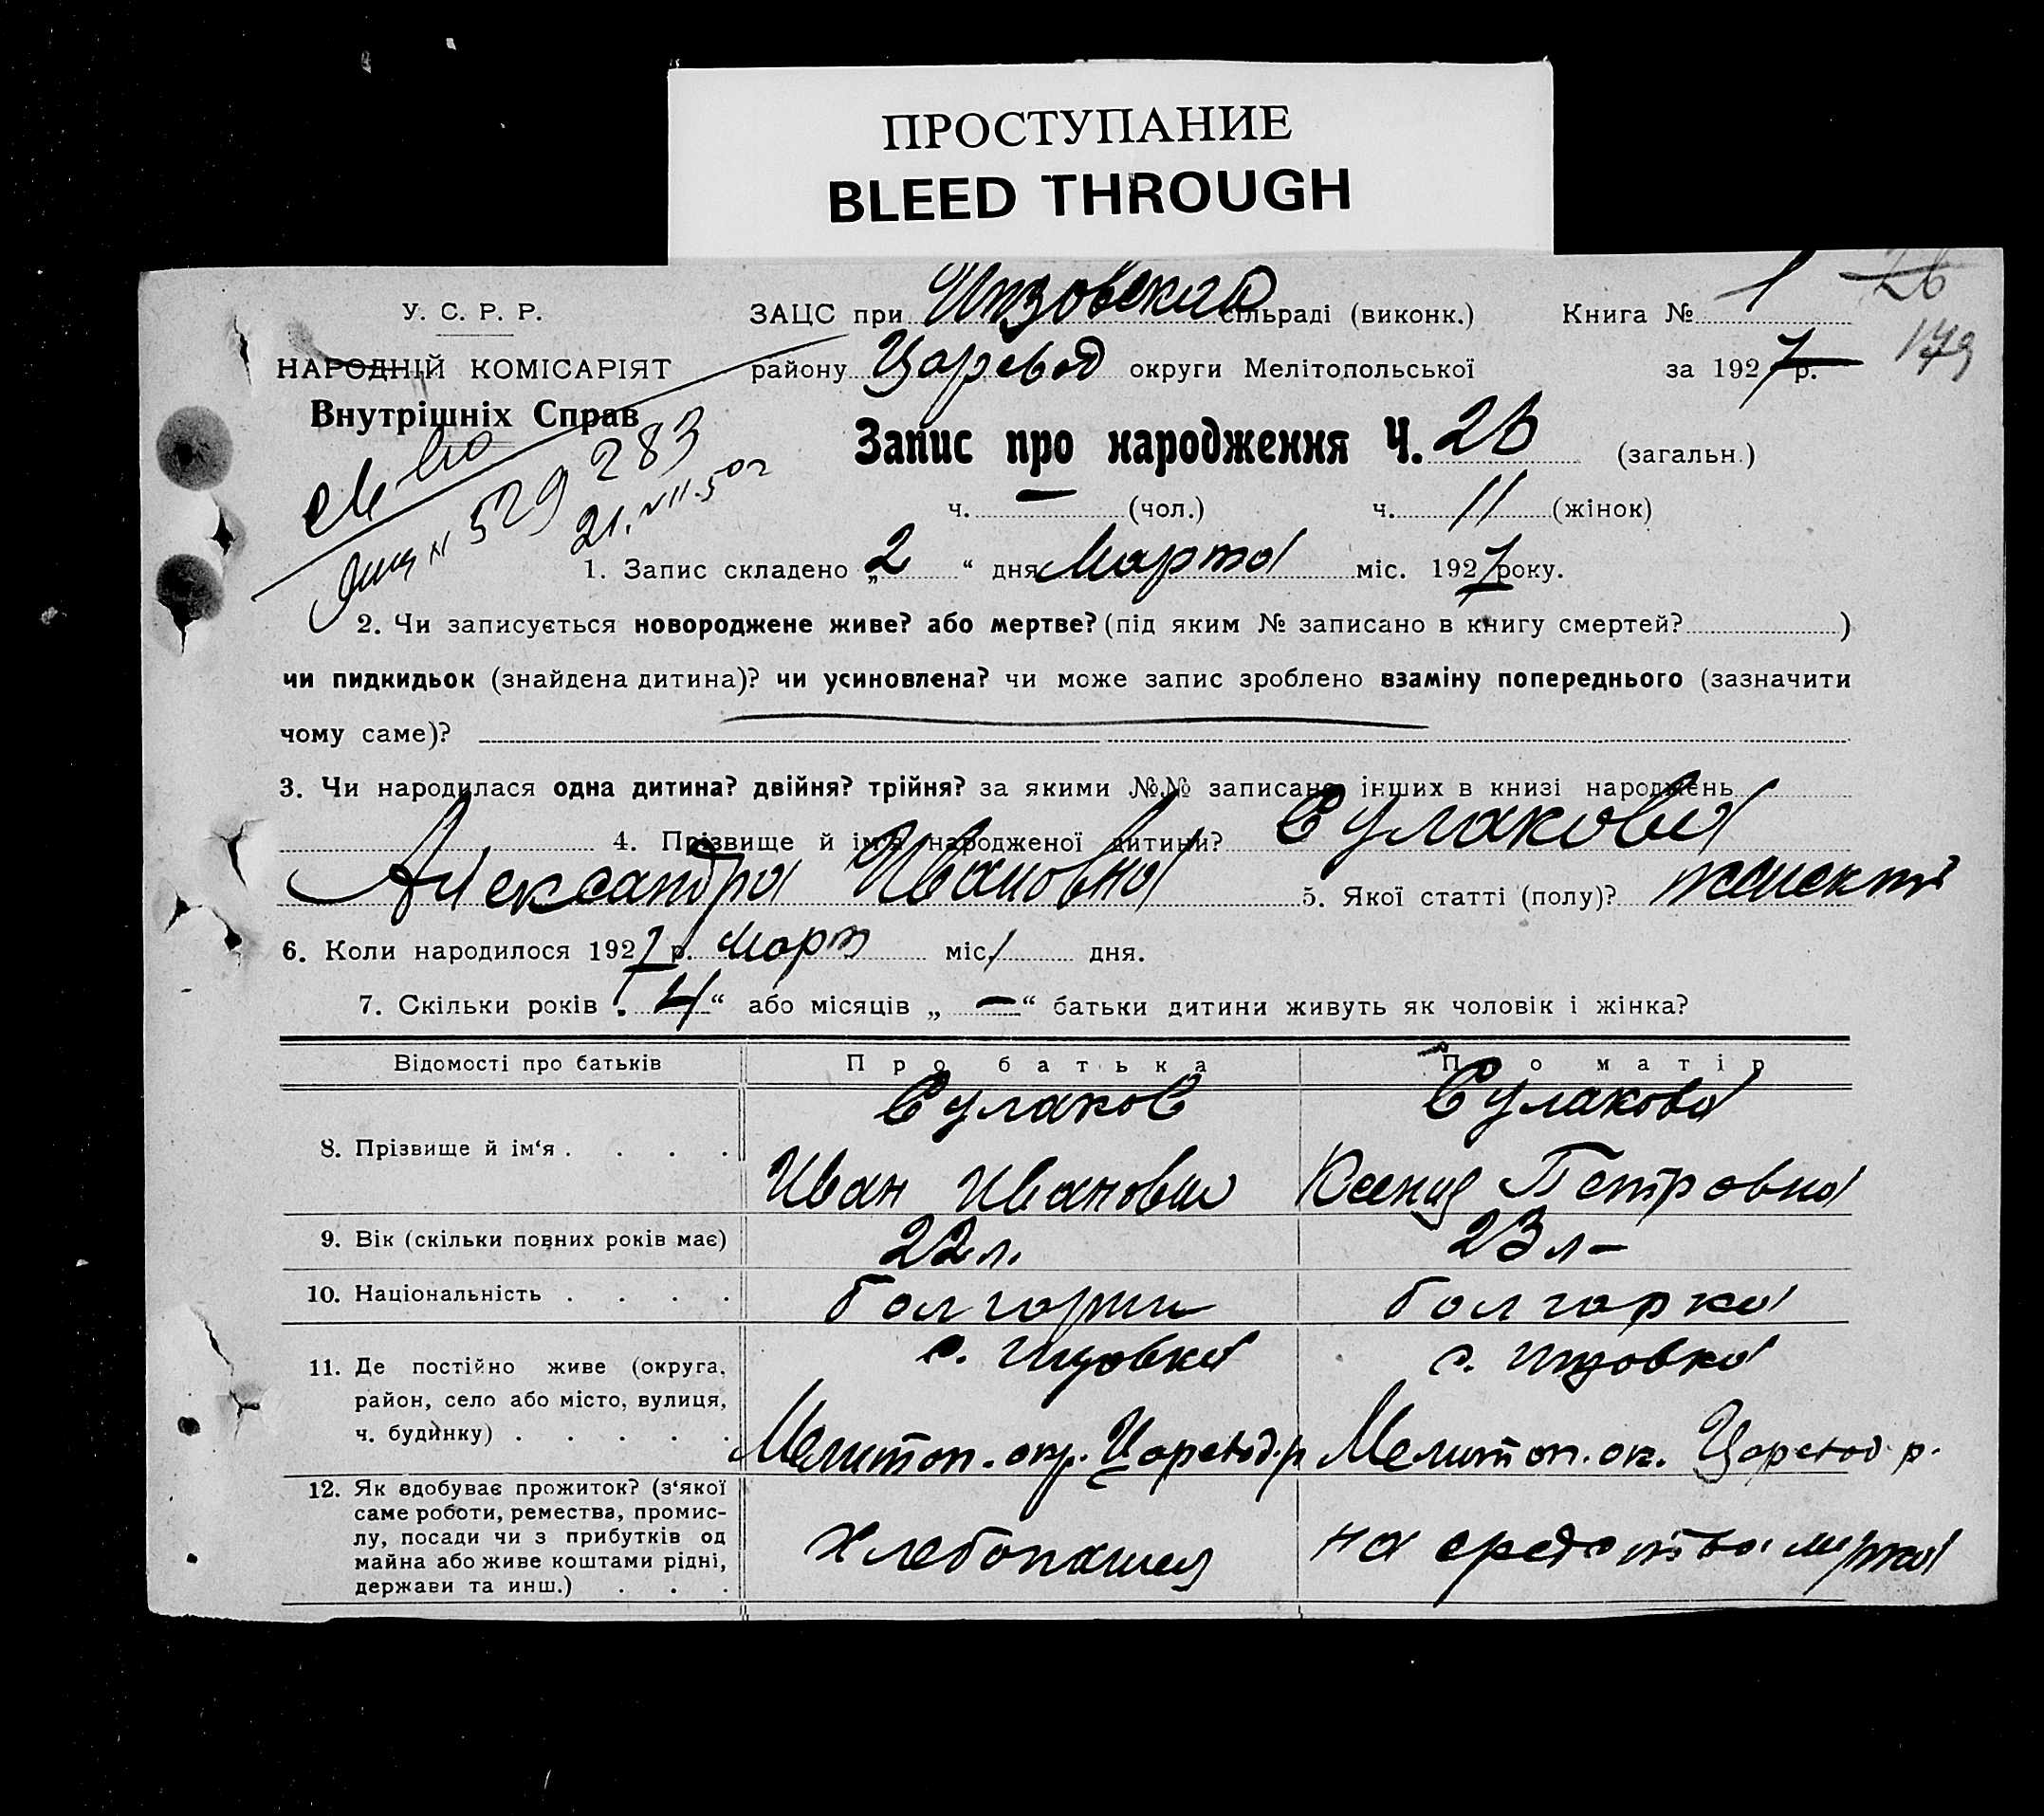 ПРОСТУПАНИЕ
BLEED THROUGH
У. С. Р. Р.
НАРОДНІЙ КОМІСАРІЯТ
Внутрішніх Справ
№ 529 283
21.VII.50 г
ЗАЦС при сільраді (виконк.) Книга № 1 26
179
району Царевод округи Мелітопольської за 1927 р.
Запис про народження Ч. 26 (загальн.)
ч. — (чол.) ч. 11 (жінок)
1. Запис складено „2“ дня Марта міс. 1927 року.
2. Чи записується новороджене живе? або мертве? (під яким № записано в книгу смертей? )
чи пидкидьок (знайдена дитина)? чи усиновлена? чи може запис зроблено взаміну попереднього (зазначити
чому саме)?
3. Чи народилася одна дитина? двійня? трійня? за якими №№ записано інших в книзі народжень
4. Прізвище й ім'я народженої дитини? Сулакова
Александра Ивановна 5. Якої статті (полу)?
6. Коли народилося 1927 р. март міс. 1 дня.
7. Скільки років „4“ або місяців „—“ батьки дитини живуть як чоловік і жінка?
Відомості про батьків Про батька Про матір
8. Прізвище й ім'я . . . . Сулаков Сулакова
Иван Иванович Ксения Петровна
9. Вік (скільки повних років має) 22 л. 23 л–
10. Національність . . . . болгарин болгарка
11. Де постійно живе (округа, район, село або місто, вулиця, ч. будинку) . . . . . с. с.
Мелитоп. окр. Царевод. р Мелитоп. ок. Царевод. р.
12. Як здобуває прожиток? (з'якої
саме роботи, ремества, промис-
лу, посади чи з прибутків од
майна або живе коштами рідні,
держави та инш.) . . . хлебопашец на средства мужа